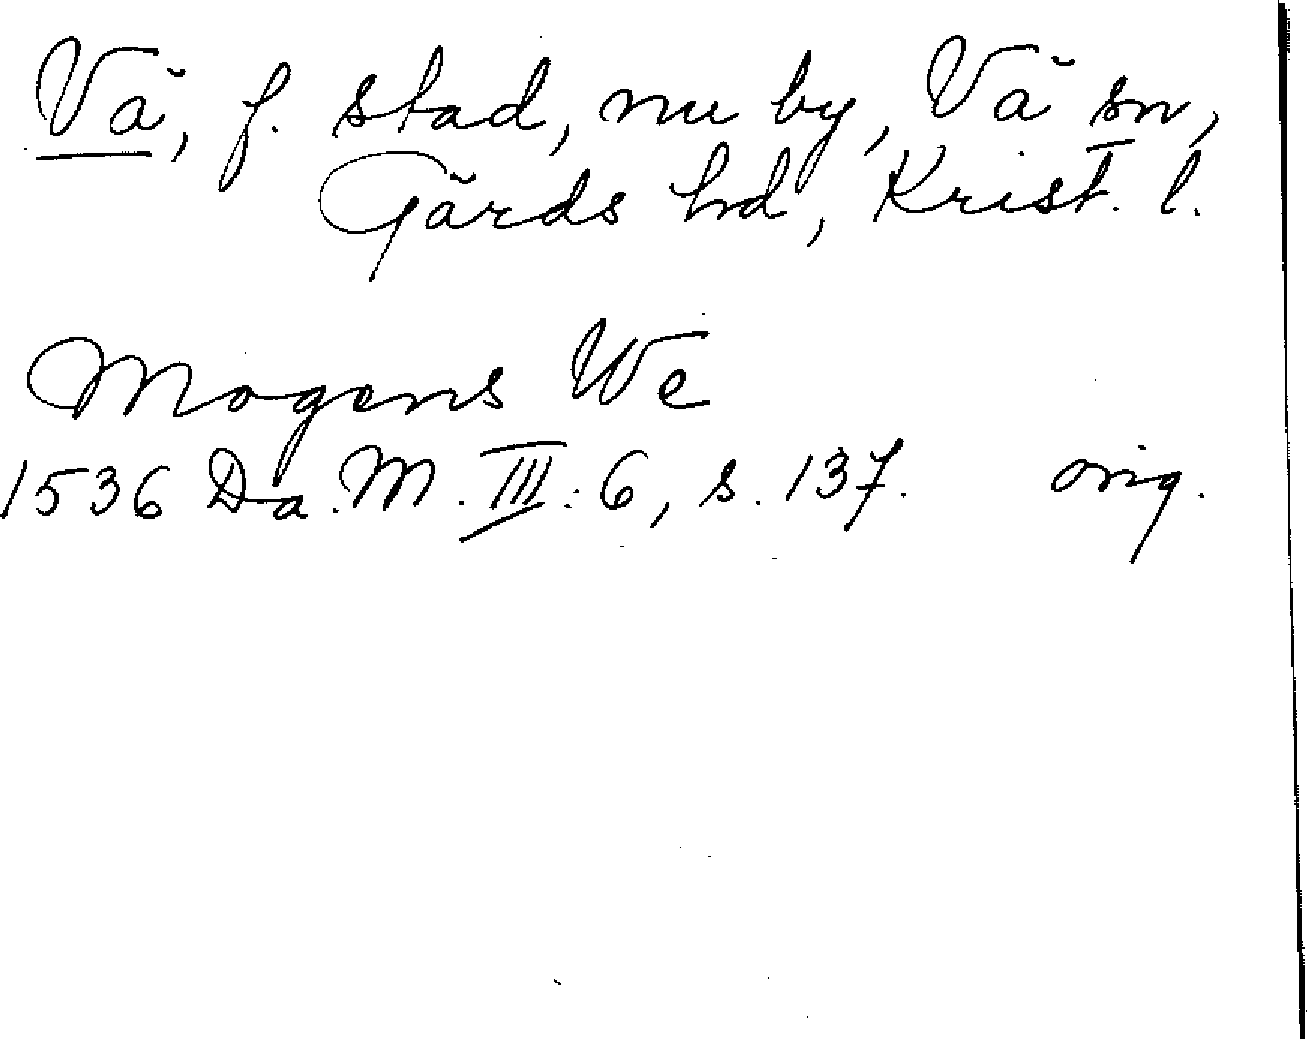 Vä, f. stad, nu by, Vä sn,
Gärds hd, Krist. l.
Mogens We
1536 Da. M. III: 6, s. 137. orig.